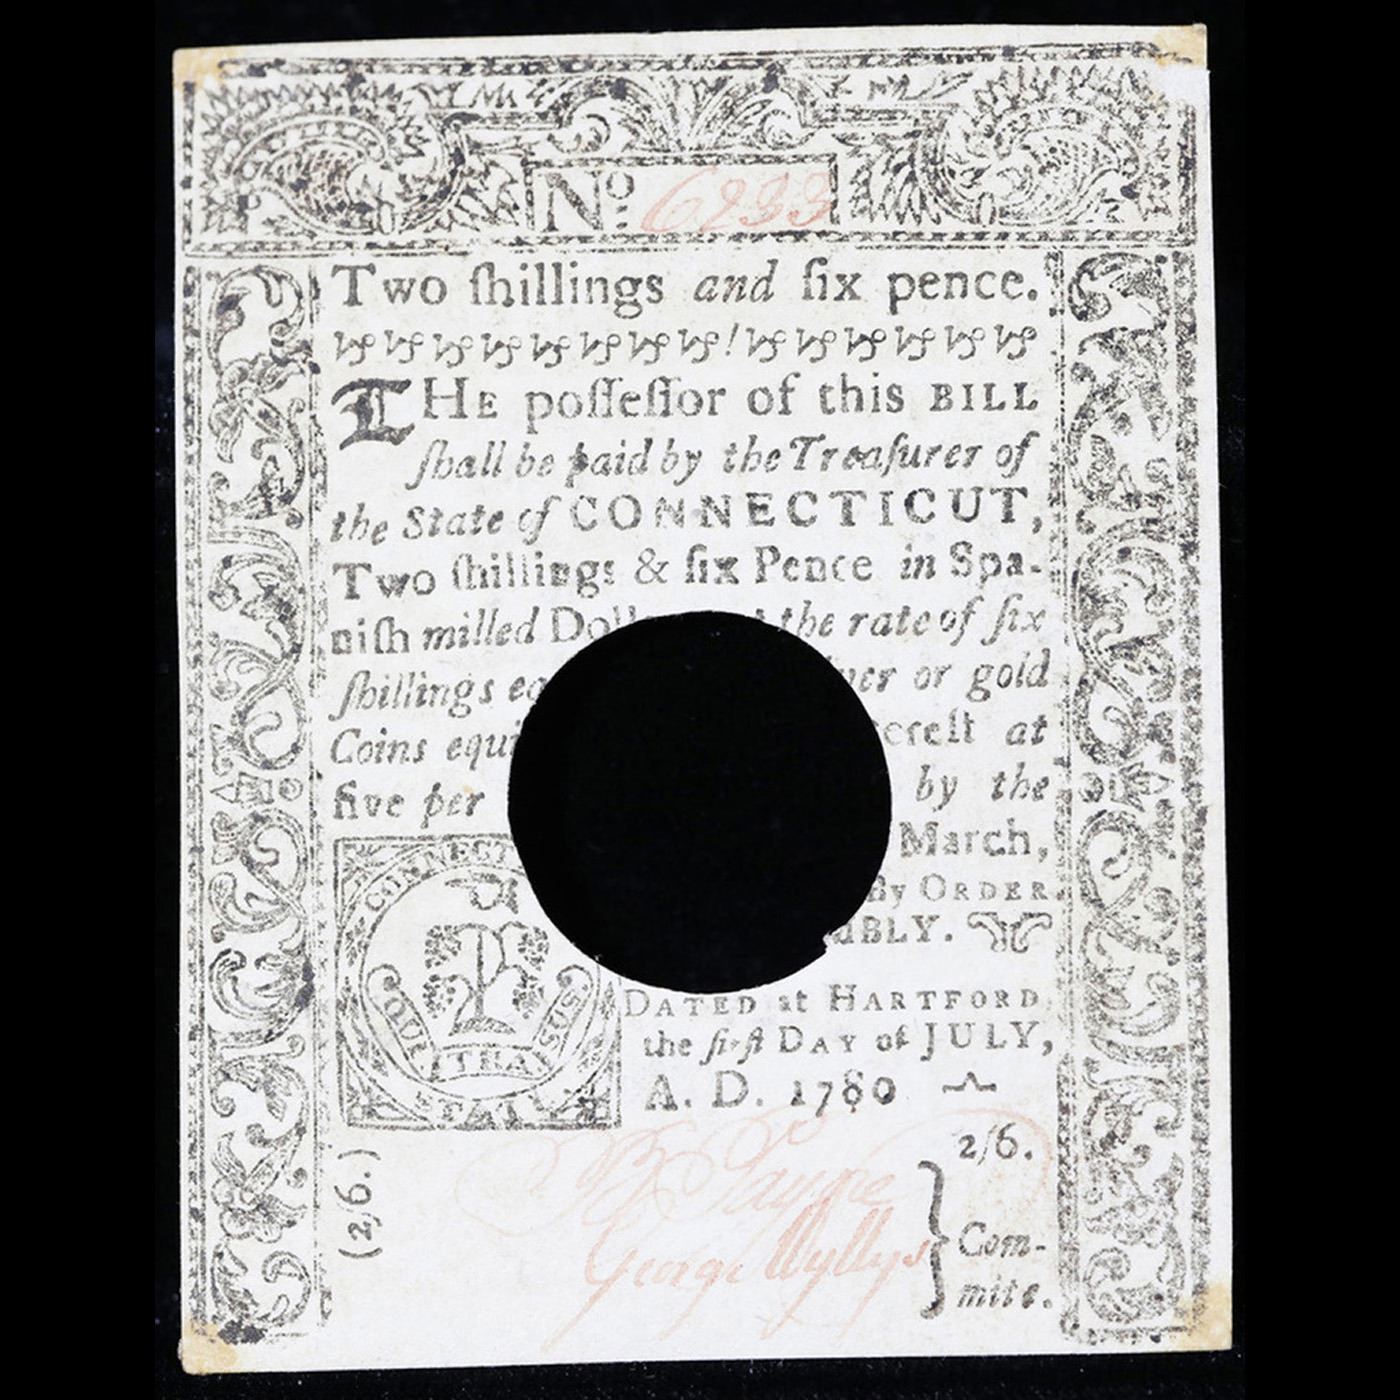 No. 6233
Two ſhillings and ſix pence.
THE poſſeſſor of this BILL
ſhall be paid by the Treaſurer of
the State of CONNECTICUT,
Two ſhillings & ſix Pence in Spa-
niſh milled Doll the rate of ſix
ſhillings or gold
Coins at
five per by the
March,
By ORDER
DATED at HARTFORD
the firſt DAY of JULY,
A. D. 1780
QUI TRA SUS
SEAL
(2/6.)
2/6.
B Payne
George Wyllys
Com-
mite.